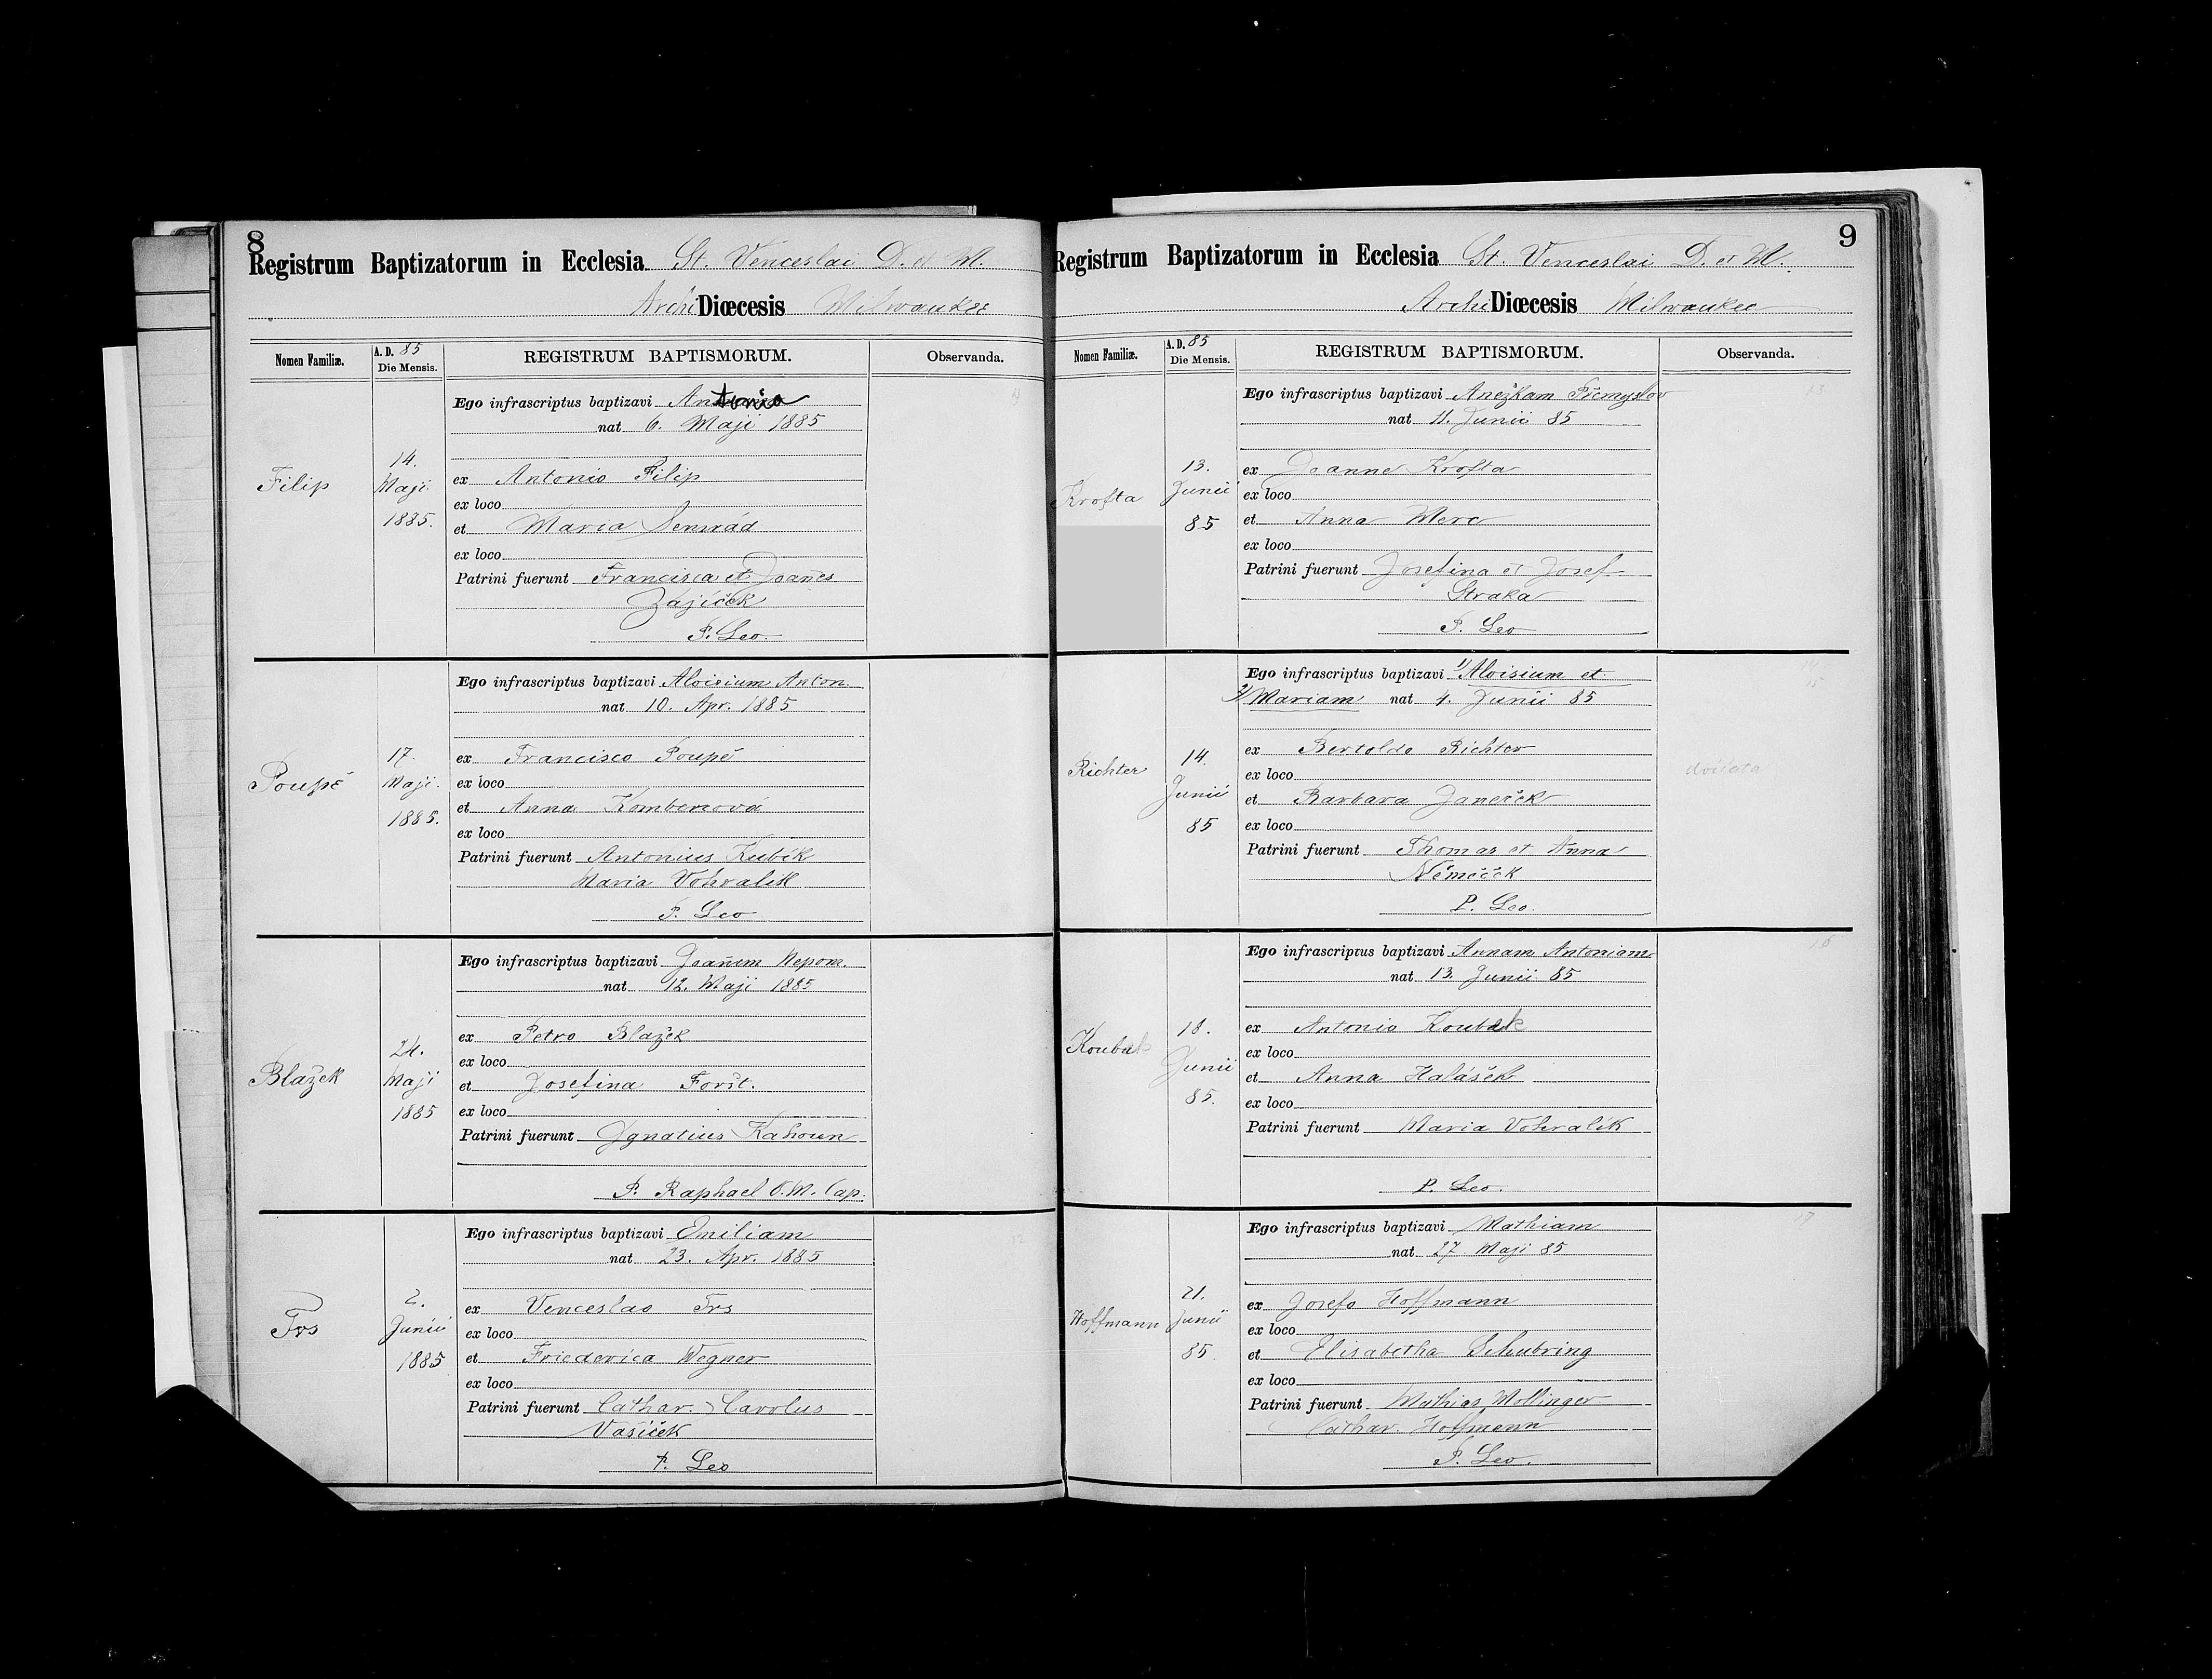 8
Registrum Baptizatorum in Ecclesia St. Venceslai D. et M.
ArchiDiœcesis Milwaukee
Nomen Familiæ.
A. D. 85
Die Mensis.
REGISTRUM BAPTISMORUM.
Observanda.
Filip
14.
Maji
1885.
Ego infrascriptus baptizavi Antonia
nat 6. Maji 1885
ex Antonio Filip
ex loco
et Maria
ex loco
Patrini fuerunt Francisca et Joañes
Zajíček
P. Leo
Poupě
17.
Maji.
1885.
Ego infrascriptus baptizavi Aloisium Anton.
nat 10. Apr. 1885
ex Francisco Poupě
ex loco
et Anna
ex loco
Patrini fuerunt Antonius Kubík
Maria Vohralík
P. Leo
Blažek
24.
Maji
1885
Ego infrascriptus baptizavi Joañem Nepom.
nat 12. Maji 1885
ex Petro Blažek
ex loco
et Josefina Foršt.
ex loco
Patrini fuerunt Ignatius Kahoun
P. Raphael O. M. Cap.
Trs
2.
Junii
1885
Ego infrascriptus baptizavi Emiliam
nat 23. Apr. 1885
12
ex Venceslao Trs
ex loco
et Friederica Wegner
ex loco
Patrini fuerunt Cathar. Carolus
Vašíček
P. Leo
9
Registrum Baptizatorum in Ecclesia St. Venceslai D. et M.
ArchiDiœcesis Milwaukee
Nomen Familiæ.
A. D. 85
Die Mensis.
REGISTRUM BAPTISMORUM.
Observanda.
Krofta
13.
Junii
85
Ego infrascriptus baptizavi Anežkam Přemyslov
13
nat 11. Junii 85
ex Joanne Krofta
ex loco
et Anna Merc
ex loco
Patrini fuerunt Josefina et Josef
Straka
P. Leo
Richter
14.
Junii
85
Ego infrascriptus baptizavi 1/ Aloisium et
14
2/ Mariam nat 4. Junii 85
15
ex Bertoldo Richter
ex loco
dvičata
et Barbara Janeček
ex loco
Patrini fuerunt Thomas et Anna
Němeček
P. Leo.
Koubek
18.
Junii
85.
Ego infrascriptus baptizavi Annam Antoniam
16
nat 13. Junii 85
ex Antonio Koubek
ex loco
et Anna Halášek
ex loco
Patrini fuerunt Maria Vohralík
P. Leo.
Hoffmann
21.
Junii
85.
Ego infrascriptus baptizavi Mathiam
17
nat 27. Maji 85
ex Josefo Hoffmann
ex loco
et Elisabetha Schubring
ex loco
Patrini fuerunt Mathias Mollinger
Cathar. Hoffmann
P. Leo.